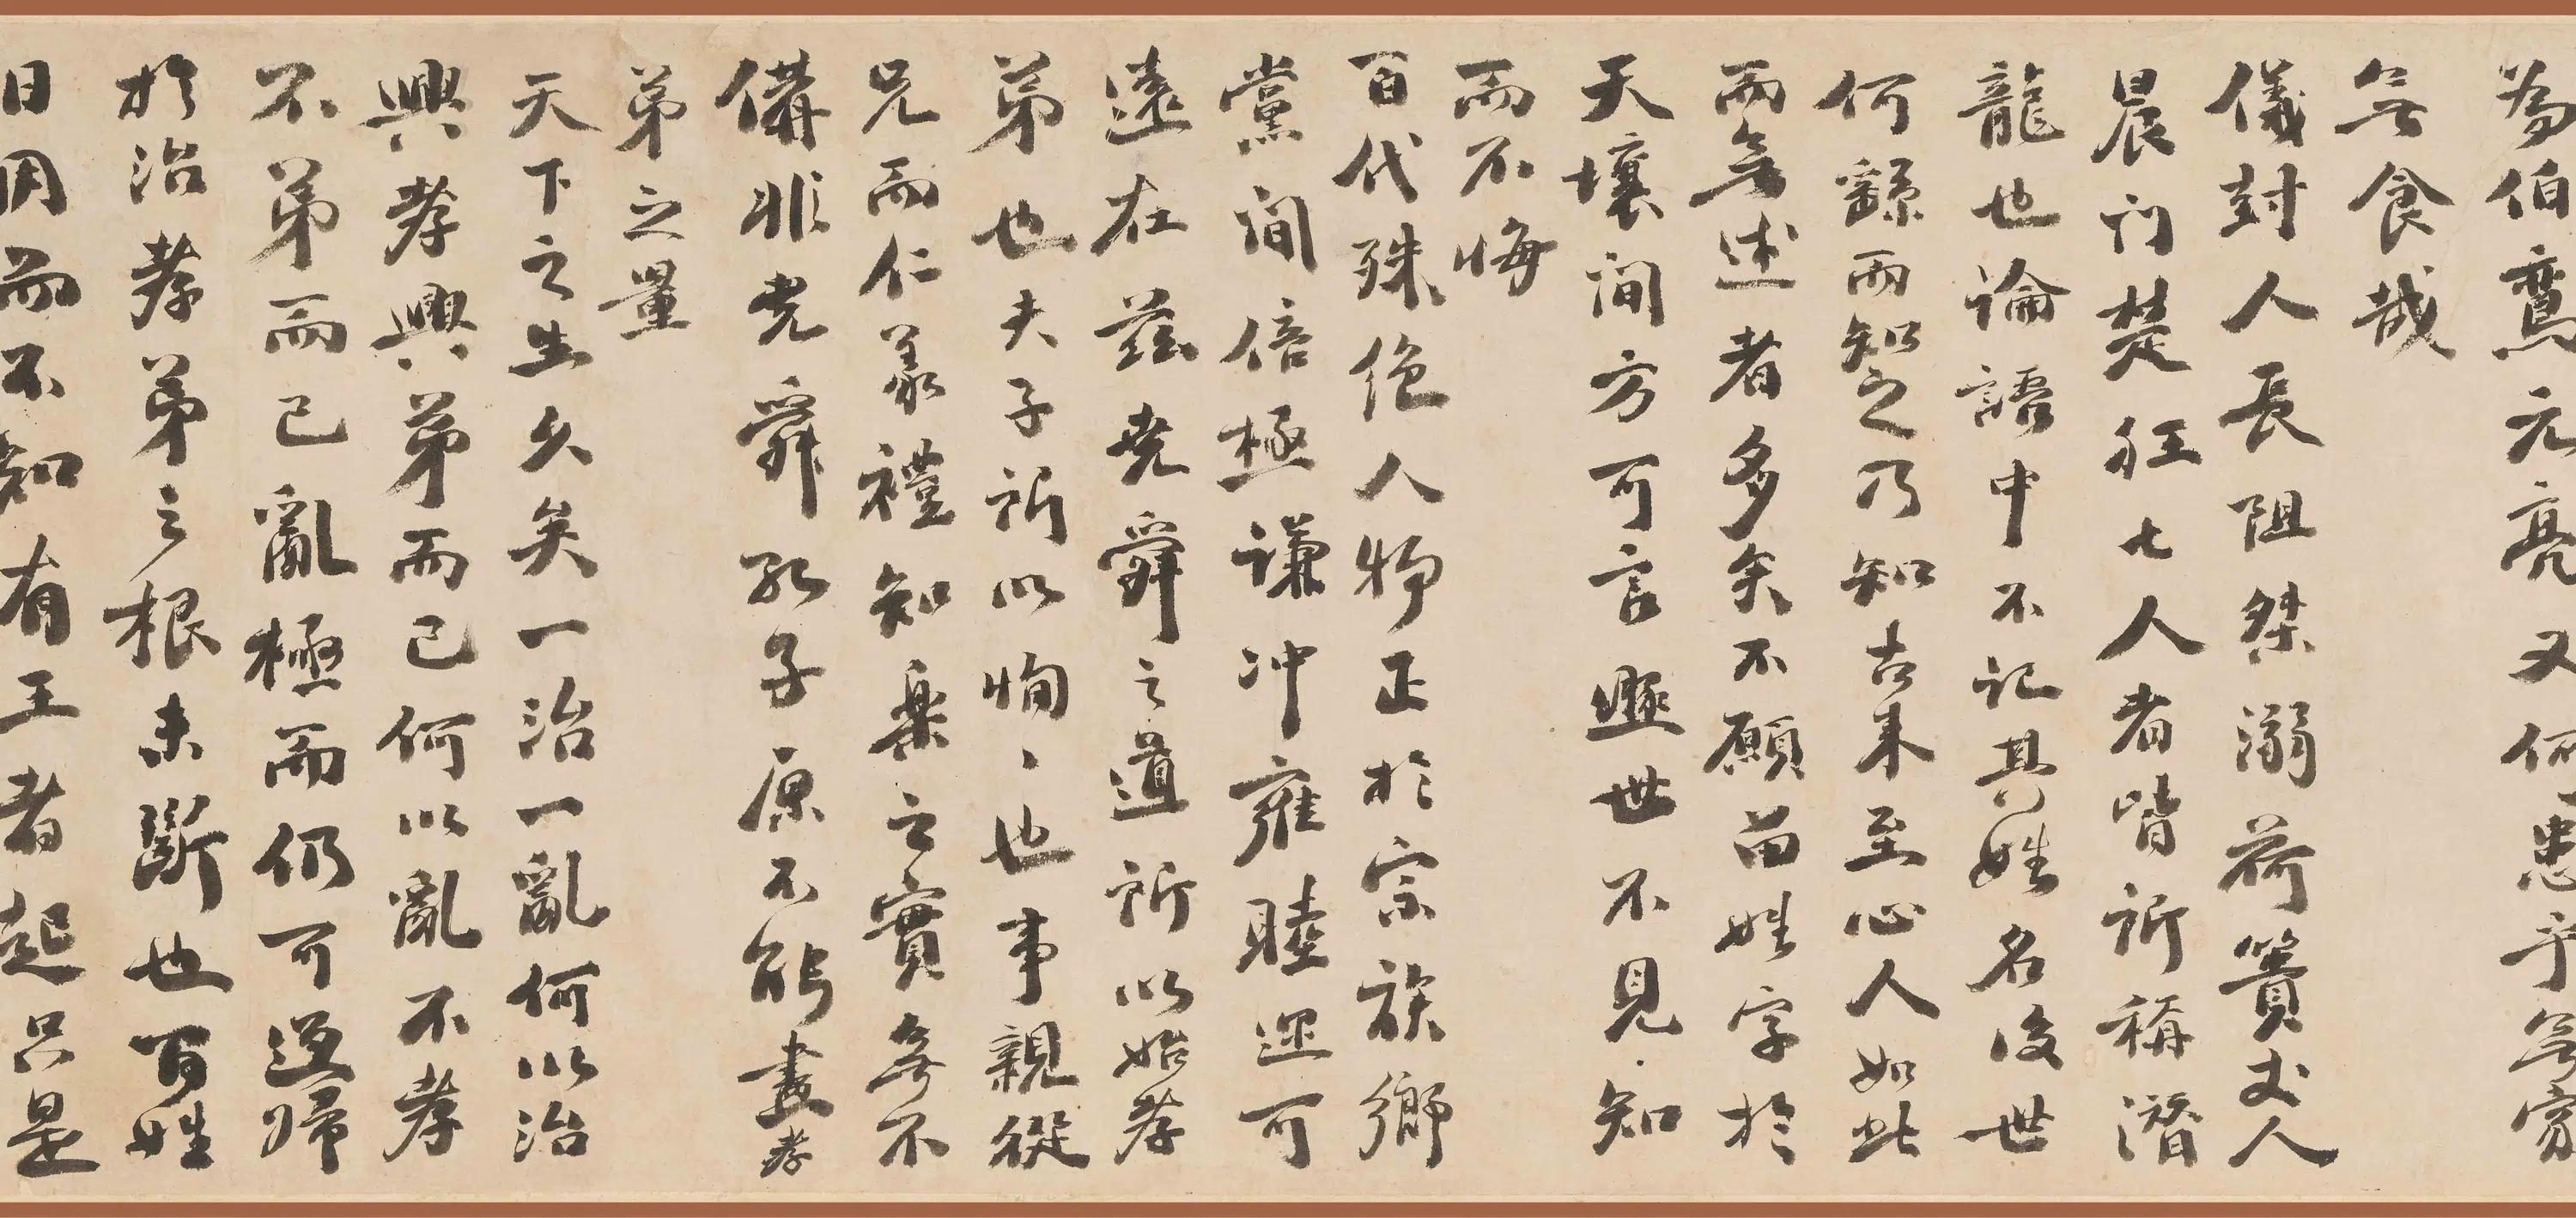 為伯鸞元亮又何患乎無家
無食哉
儀封人長阻桀溺荷蕢丈人
晨門楚狂七人者皆所稱潛
龍也論語中不記其姓名後世
何繇而知之乃知古來至心人如此
而無述者多矣不顧留姓字於
天壤間方可言遯世不見知
而不悔
百代殊絕人物正於宗族鄉
黨間倍極謙沖雍睦還可
遠在茲堯舜之道所以始孝
弟也夫子所以恂、也事親從
兄而仁義禮知樂之實無不
備非堯舜孔子原不能盡孝
弟之量
天下之生久矣一治一亂何以治
興孝興弟而已何以亂不孝
不弟而已亂極而仍可還歸
於治孝弟之根未斷也百姓
日用而不知有王者起只是